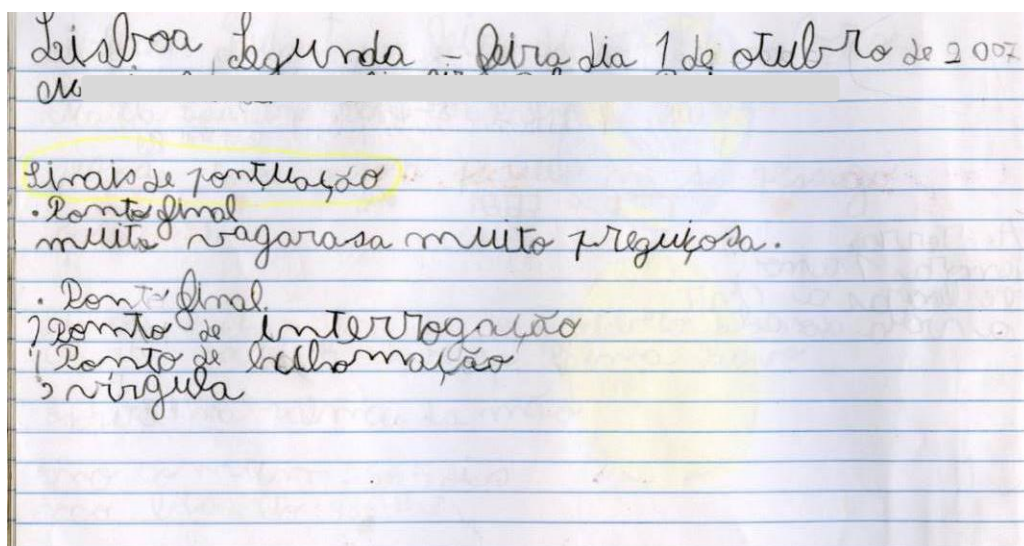 Lisboa Segunda - feira dia 1 de otubro de 2007
Sinais de pontuação
. Ponto final
muito vagarasa muito preguiçosa.
. Ponto final
? ponto de interrogação
! Ponto de
, vírgula